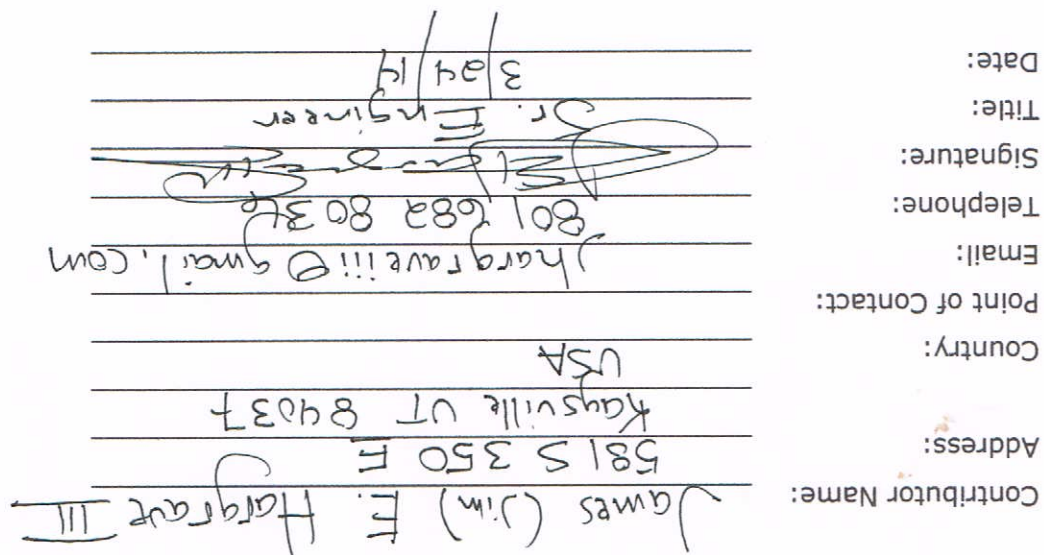 Contributor Name: James (Jim) E. Hargrave III
Address: 581 S 350 E
Kaysville UT 84037
Country: USA
Point of Contact:
Email: jhargraveiii@gmail.com
Telephone: 801 682 8036
Signature:
Title: Sr. Engineer
Date: 3/24/14